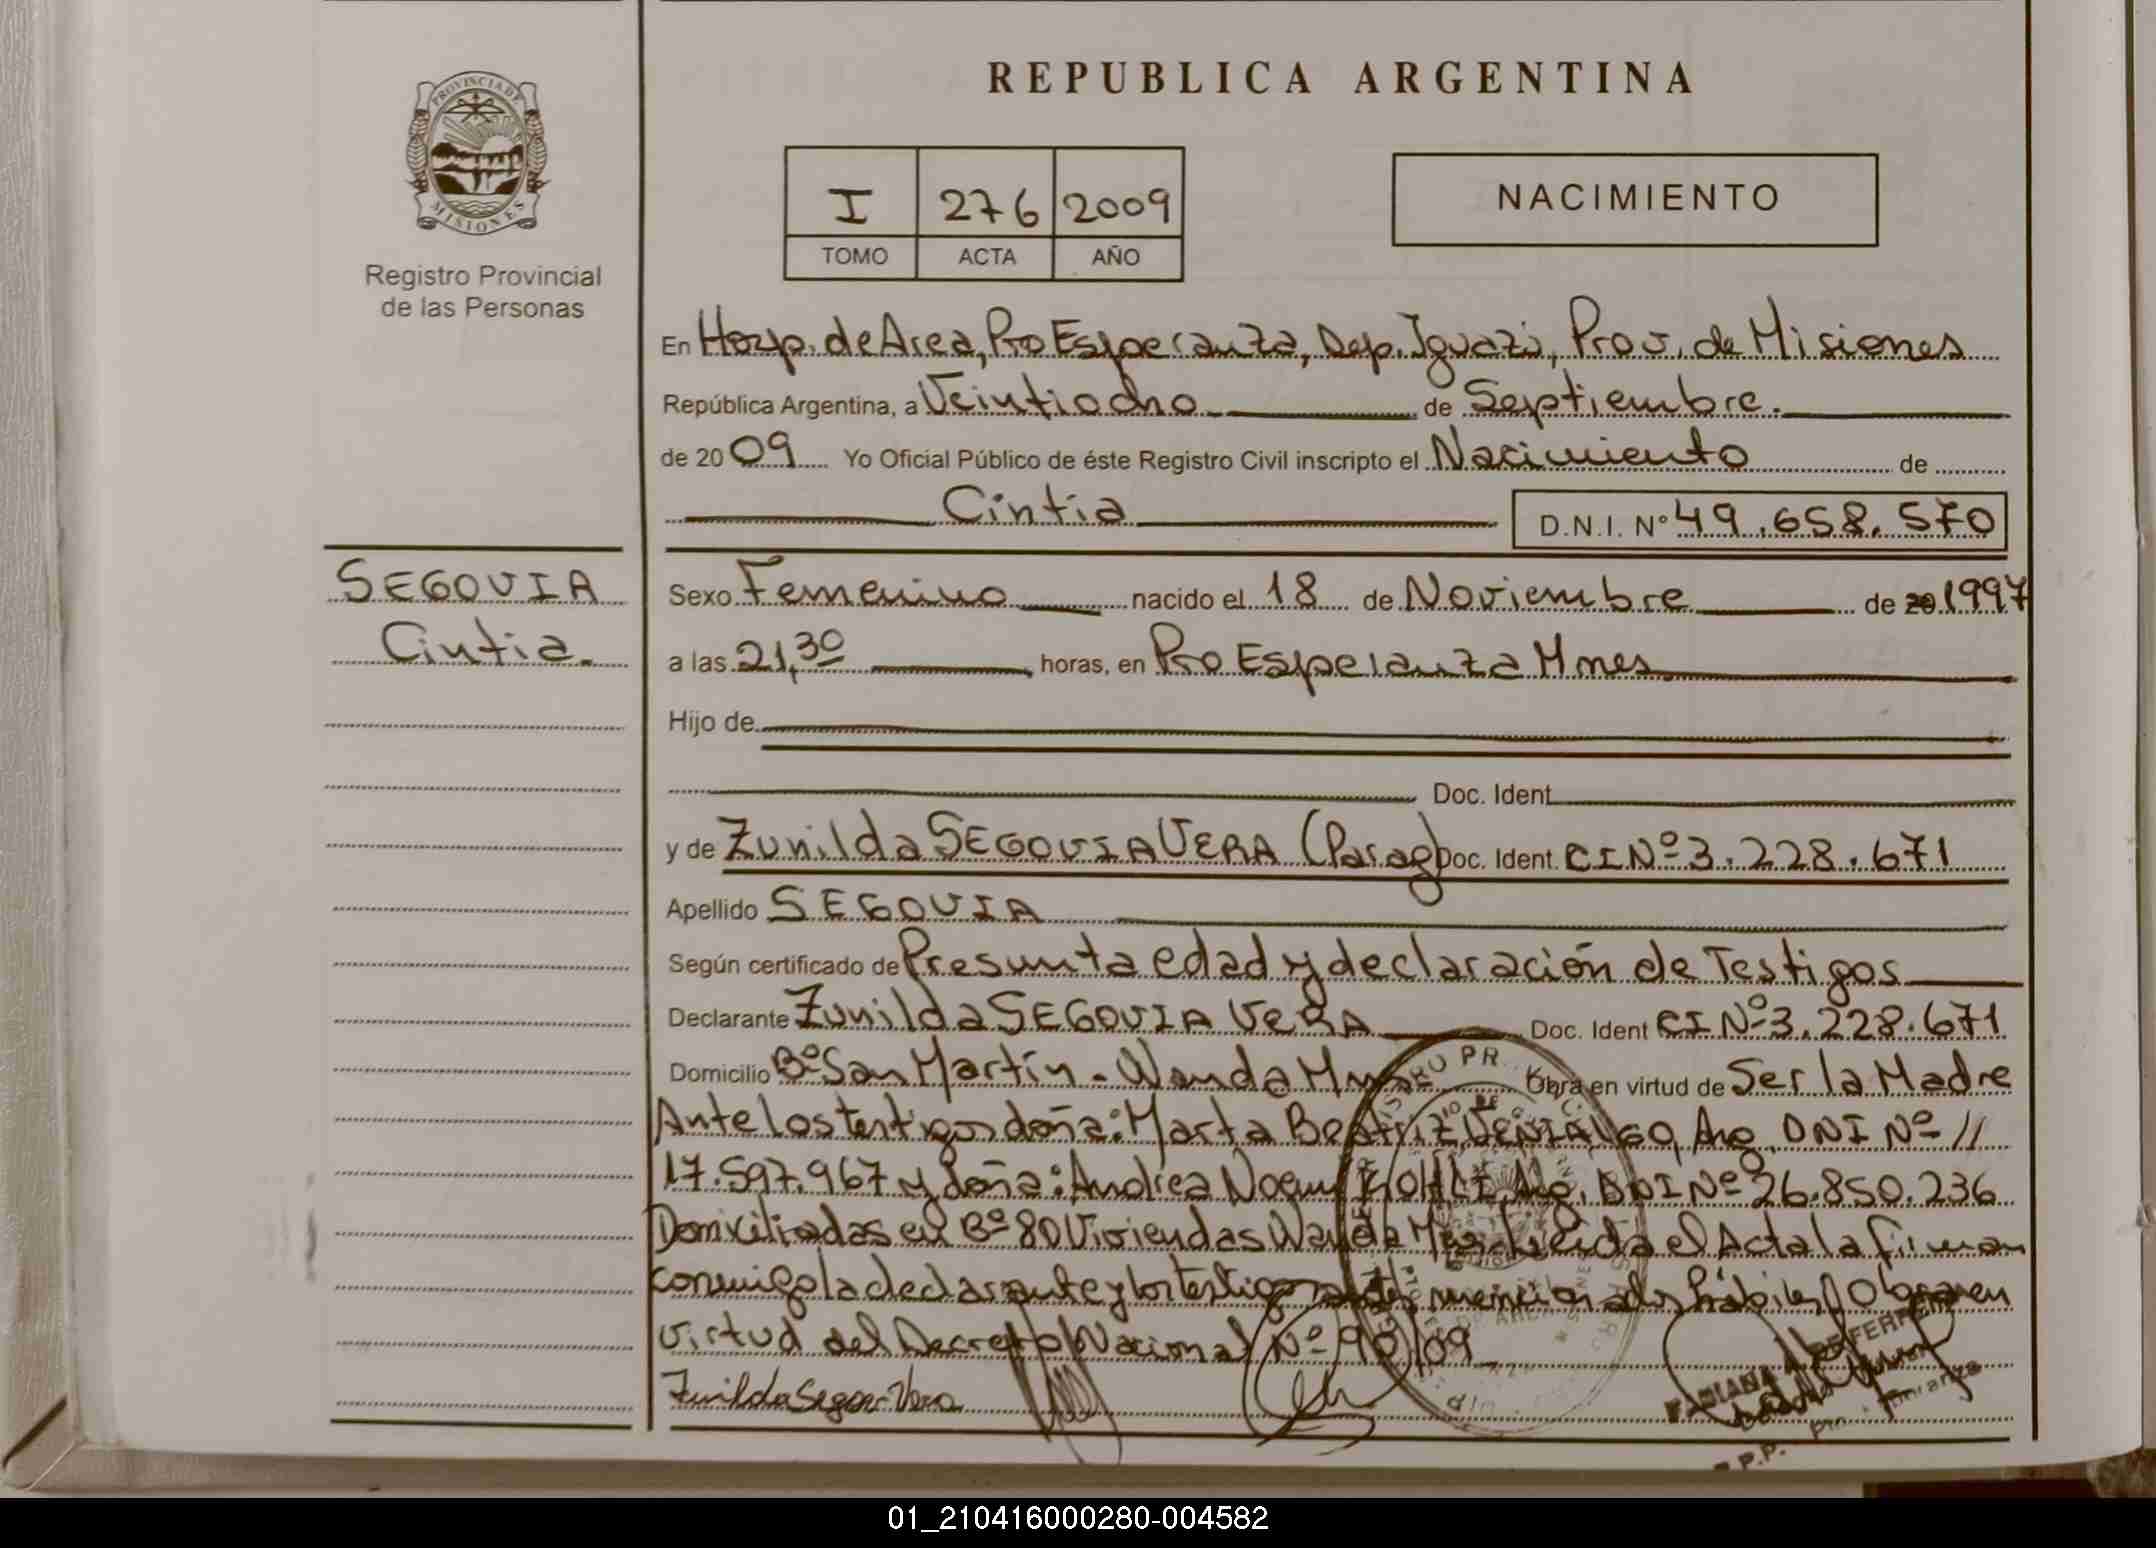 REPUBLICA ARGENTINA
PROVINCIA DE MISIONES
Registro Provincial
de las Personas
I 276 2009
TOMO ACTA AÑO
NACIMIENTO
En Hosp. de Area, Pto Esperanza, Dep. Iguazú, Prov. de Misiones
República Argentina, a Veintiocho de Septiembre.
de 20 09 Yo Oficial Público de éste Registro Civil inscripto el Nacimiento de
Cintia D.N.I. Nº 49.658.570
SEGOVIA
Cintia.
Sexo Femenino nacido el 18 de Noviembre de 20 1997
a las 21,30 horas, en Pto Esperanza Mnes.
Hijo de
Doc. Ident.
y de Zunilda SEGOVIA VERA (Parag) Doc. Ident. CI Nº 3.228.671
Apellido SEGOVIA
Según certificado de Presunta edad y declaración de Testigos
Declarante Zunilda SEGOVIA VERA Doc. Ident CI Nº 3.228.671
Domicilio Bº San Martín - Wanda Mnes Obra en virtud de Ser la Madre
Ante los testigos doña: Marta Beatriz Arg. DNI Nº //
17.597.967 y doña: Andrea Noemi Arg. DNI Nº 26.850.236
Domiciliadas en Bº 80 Viviendas Wanda el Acta la firman
conmigo la declarante y los testigos antes mencionados hábiles Obran en
virtud del Decreto Nacional Nº 90/09
Zunilda Segovia Vera
01_210416000280-004582